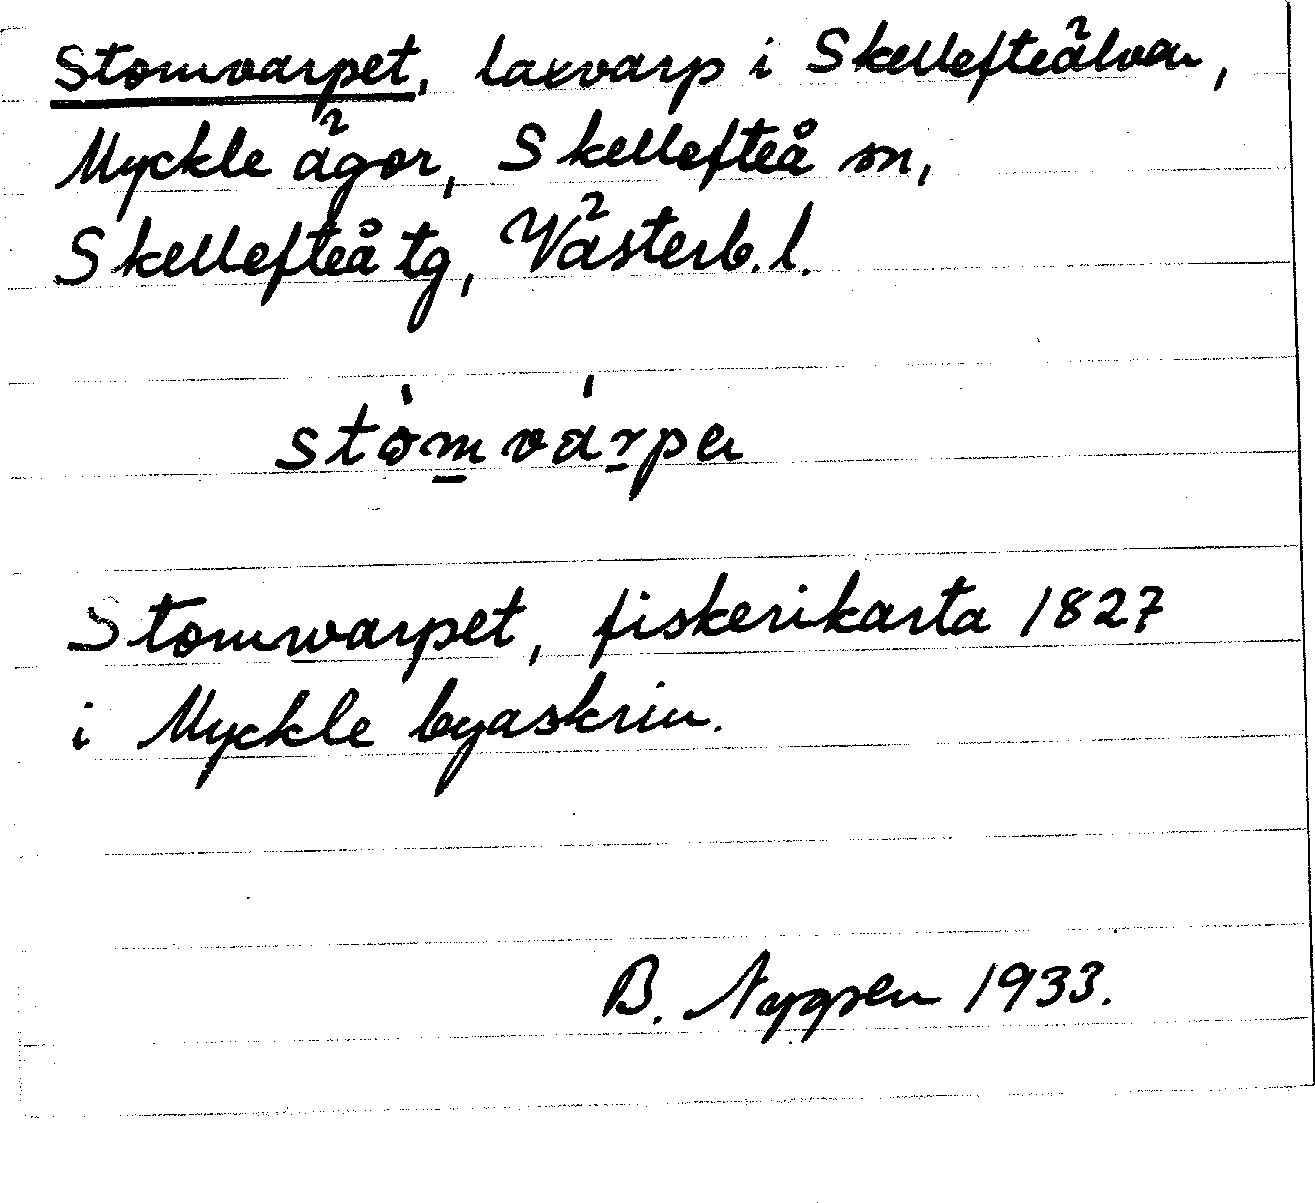 Stomvarpet, laxvarp i Skellefteälven,
Myckle ägor, Skellefteå sn,
Skellefteå tg, Västerb. l.
stòmvárpe
Stomwarpet, fiskerikarta 1827
i Myckle byaskrin.
B. 1933.